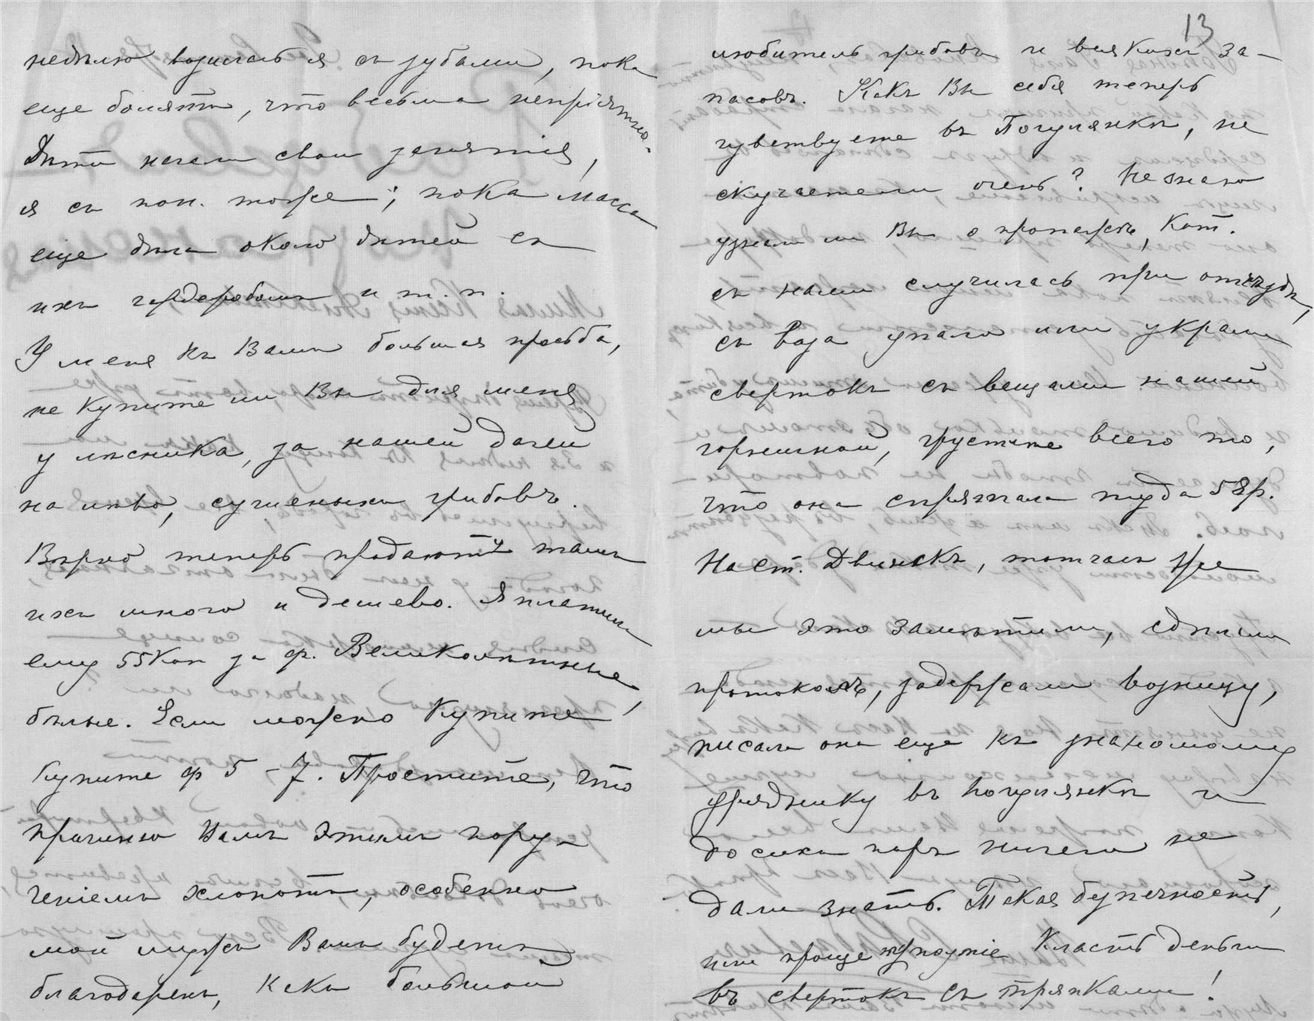 недѣлю вожилась я съ зубами, пока
еще болятъ, что весьма непрiятно.
Дѣти начали свои занятiя,
я съ пон. тоже; пока масса
еще дѣла около дѣтей съ
ихъ гардеробомъ и т. п.
У меня къ Вамъ большая просьба,
не купите ли Вы для меня
у лѣсника, за нашей дачей
налѣво, сушеныхъ грибовъ.
Вѣрно теперь продаютъ тамъ
ихъ много и дешево. Я платила
ему 55 коп за ф. Великолѣпные,
бѣлые. Если можно купите
купите ф 5 - 7. Простите, что
причиню Вамъ этимъ пору-
ченiемъ хлопотъ, особенно
мой мужъ Вамъ будетъ
благодаренъ, какъ большой
13
любитель грибовъ и всякихъ за-
пасовъ. Какъ Вы себя теперь
чувствуете въ Погулянкѣ, не
скучаете ли очень? Не знаю
узнали ли Вы о пропажѣ, кот.
съ нами случилась при отъѣздѣ,
съ воза упали или украли
свертокъ съ вещами нашей
горничной, грустнѣе всего то,
что она спрятала туда 58р.
На ст. Двинскъ, тотчасъ же
мы это замѣтили, сдѣлали
протоколъ, задержали возницу,
писали они еще къ знакомому
уряднику въ Погулянкѣ и
до сихъ поръ ничего не
дали знать. Такая безпечность,
или проще класть деньги
въ свертокъ съ тряпками!